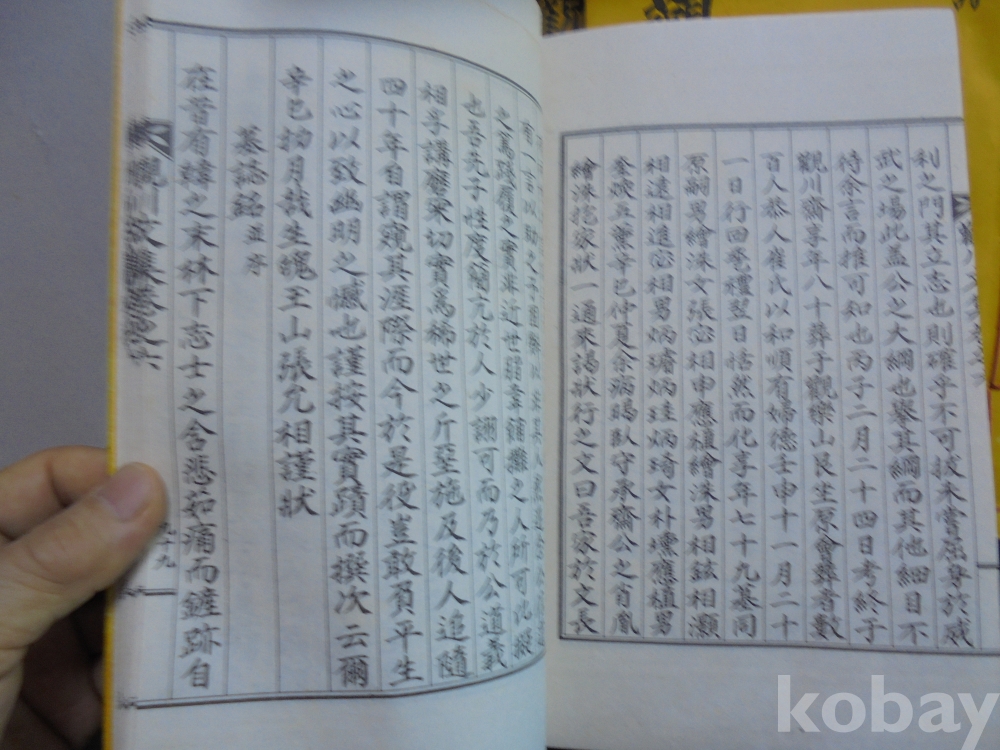 利之門其立志也則確乎不可拔未嘗屈身於威
武之場此盖公之大綱也擧其綱而其他細目不
待余言而推可知也丙子二月二十四日考終于
觀川齋享年八十葬于觀樂山艮坐原會葬者數
百人恭人崔氏以和順有婦德壬申十一月二十
一日行回巹禮翌日恬然而化享年七十九墓同
原嗣男繪洙女張宓相申應植繪洙男相鉉相灝
相遠相進宓相男炳璿炳珪炳琦女朴壎應植男
奎煥 薰辛巳仲夏余病暍臥守承齋公之首胤
繪洙抱家狀一通來謁狀行之文曰吾家於文長
有一言以
之篤踐履之實非近世脂韋 之人所可比擬
也吾先子性度簡亢於人少詡可而乃於公道義
相孚講磨 切實爲稀世之斤堊施及後人追隨
四十年自謂窺其涯際而今於是役豈敢負平生
之心以致幽明之憾也謹按其實蹟而撰次云爾
辛巳 月哉生魄玉山張允相謹狀
墓誌銘 並序
在昔有韓之末林下志士之含悲茹痛而鏟跡自
觀川文集卷之六
kobay